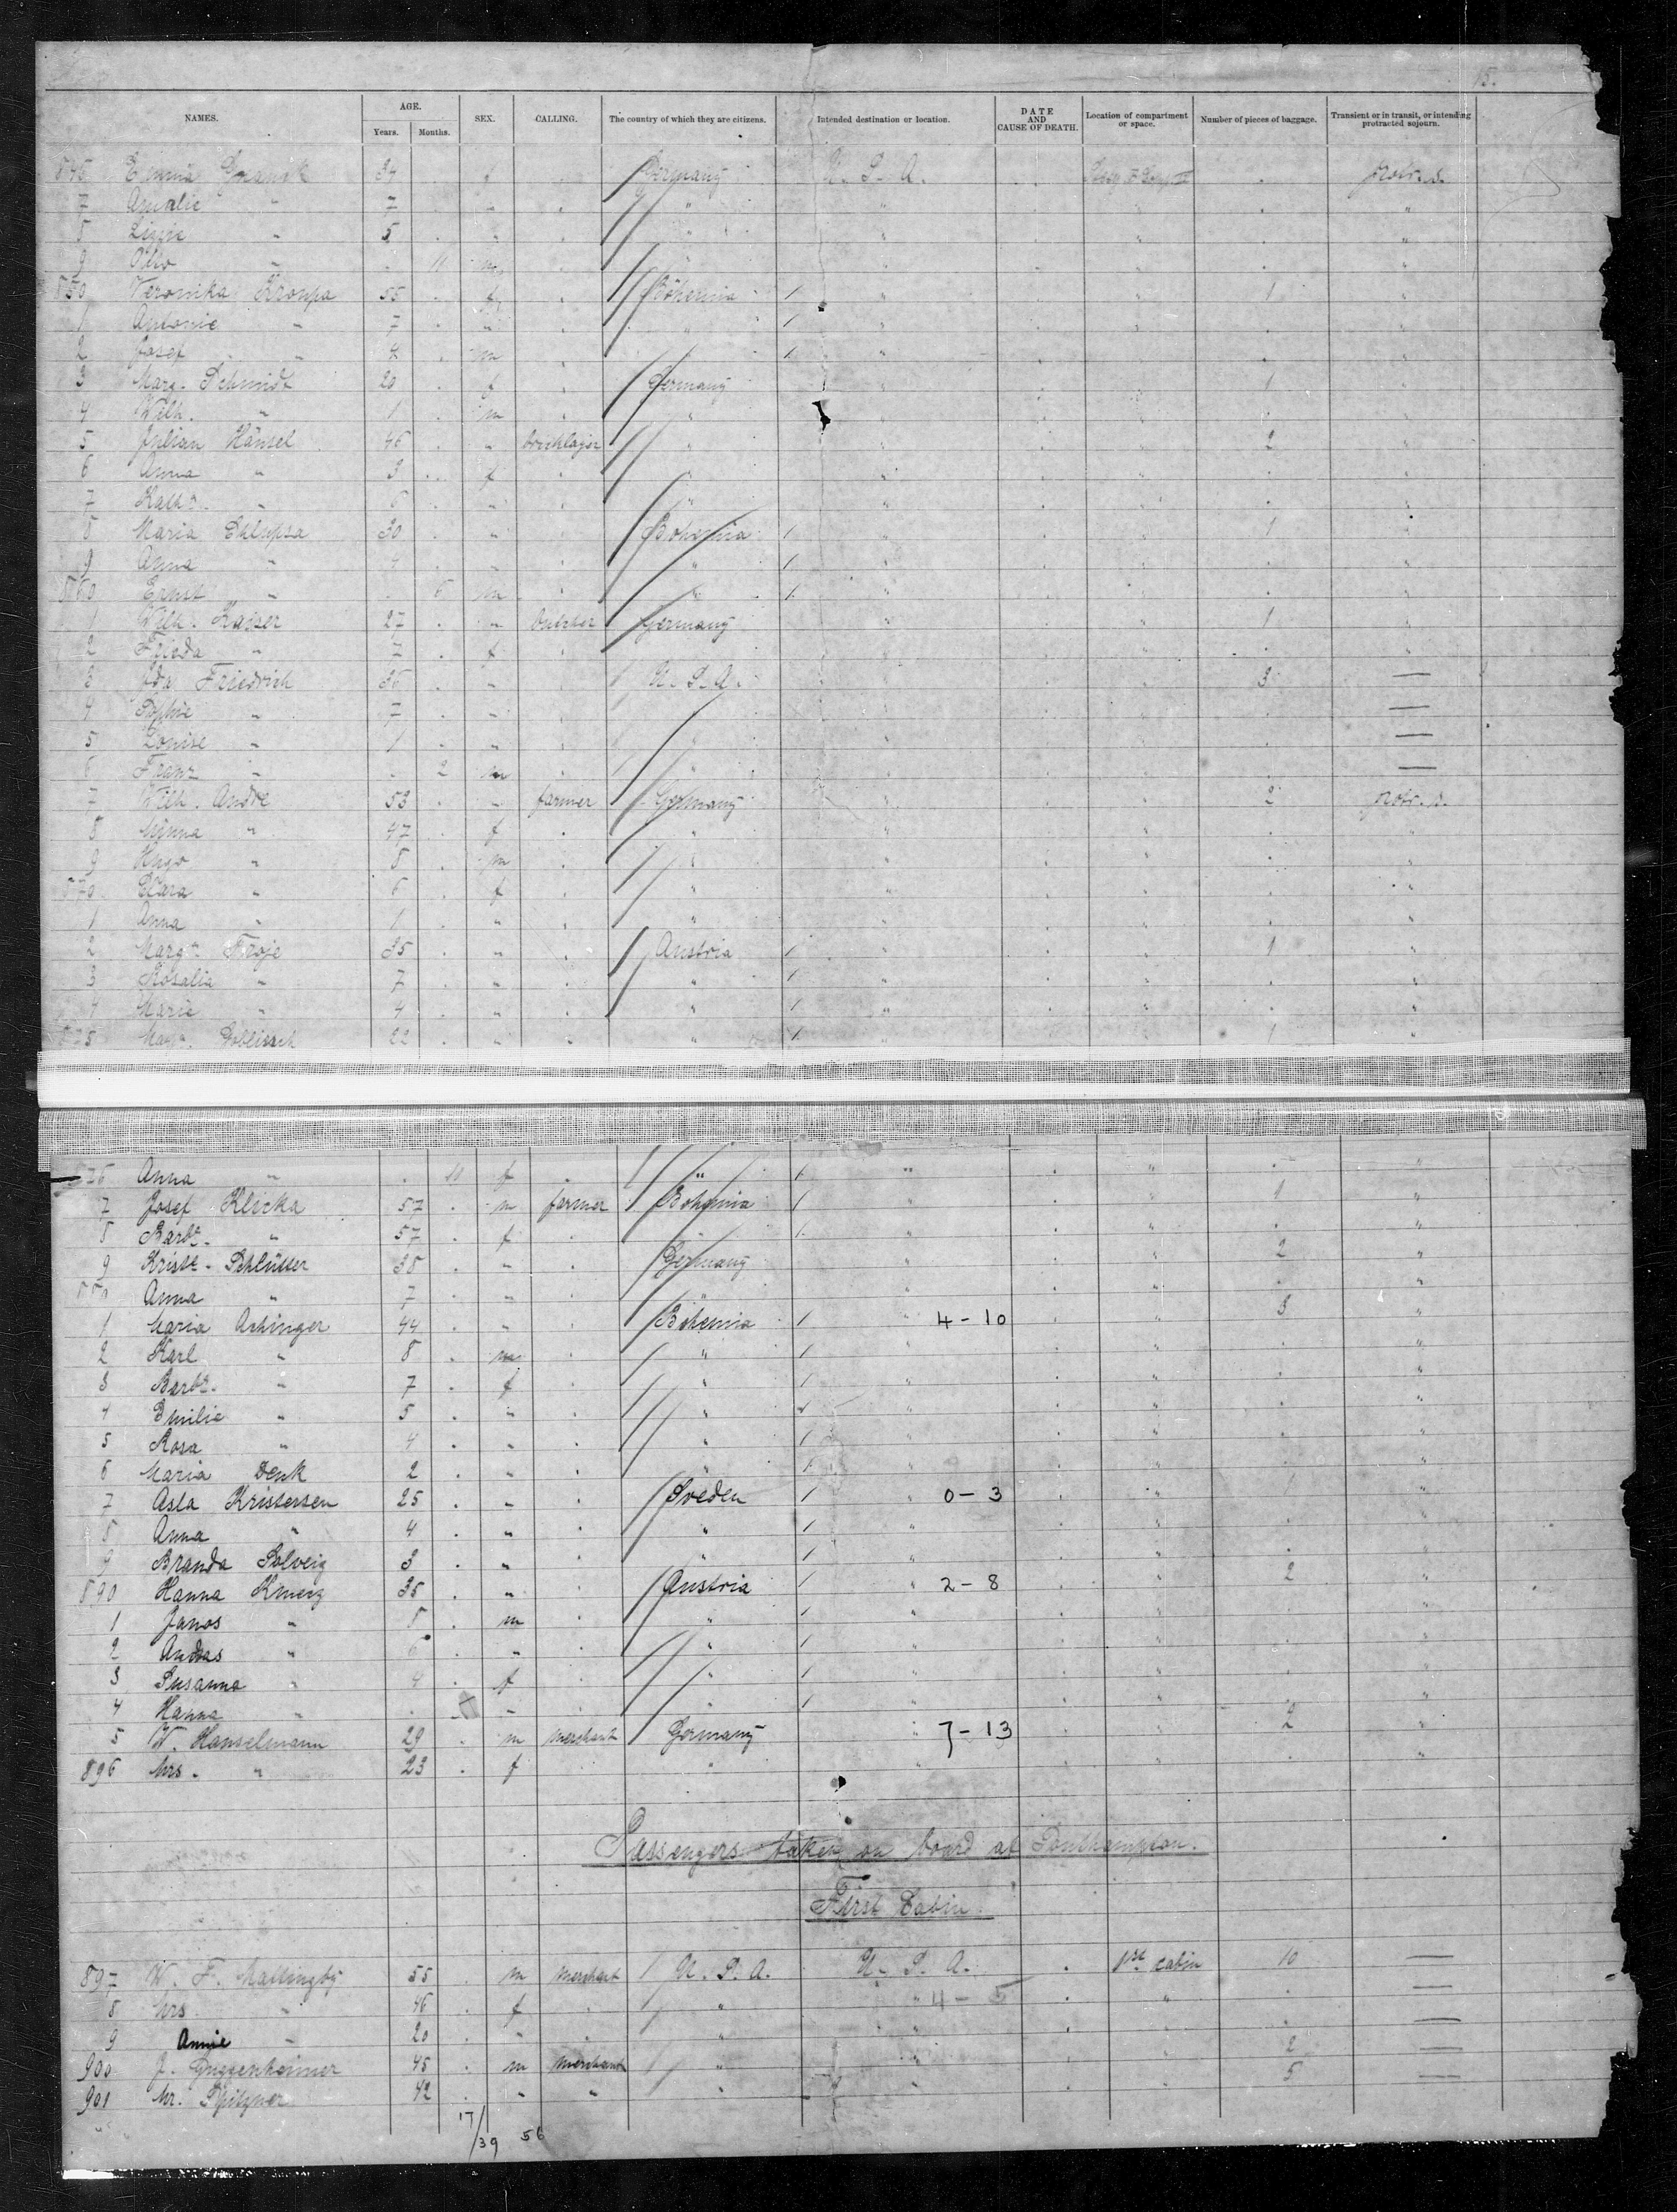 15.
NAMES. AGE. Years. Months. SEX. CALLING. The country of which they are citizens. Intended destination or location. DATE AND CAUSE OF DEATH. Location of compartment or space. Number of pieces of baggage. Transient or in transit, or intending protracted sojourn.
846 Emma 34 f Germany U. S. A. protr. s.
7 Amalie " 7 " " " "
8 " 5 " " " "
9 Otto " 11 m " " "
850 Veronika Kroupa 55 f Bohemia / " 1 "
1 Antonie " 7 " " / " "
2 Josef " 4 m / " "
3 Marg. Schmidt 20 f Germany " 1 "
4 Wilh. " 1 m " " "
5 Julian Hänsel 46 " bricklayer " " 2 "
6 Anna " 3 f " " "
7 Kath. " 6 " " " "
8 Maria Chlupsa 30 " Bohemia / " 1 "
9 Anna " 4 " " / " "
860 Ernst " 6 m " / " "
1 Wilh. Kaiser 27 " butcher Germany " 1 "
2 Frieda " 7 f " "
3 Ida Friedrich 36 " U. S. A. " 3 —
4 Sophie " 7 " " —
5 Louise " 1 " " " —
6 Franz " 2 m " " —
7 Wilh. Andre 53 " farmer Germany " 2 protr. s.
8 Minna " 47 f " " "
9 Hugo " 8 m " " "
870 Clara " 6 f " " "
1 Anna " 1 " " " "
2 Margr. Troje 35 " Austria / " 1 "
3 Rosalia " 7 " " / " "
4 Marie " 4 " " / " "
875 Margr. Goblisch 22 " " / " 1 "
876 Anna " 10 f " / " " "
7 Josef Klicka 57 m farmer Bohemia / " " 1 "
8 Barb. " 57 f " / " " "
9 Krist. Schlüter 38 " Germany " " 2 "
880 Anna " 7 " " " " "
1 Maria Achinger 44 " Bohemia / " 4-10 " 3 "
2 Karl " 8 m " / " " "
3 Barb. " 7 f " / " " "
4 Emilie " 5 " " / " " "
5 Rosa " 4 " " / " " "
6 Maria Denk 2 " " / " " "
7 Asla Kristersen 25 " Sveden / " 0-3 " 1 "
8 Anna " 4 " " / " " "
9 Branda Solveig 3 " " / " " "
890 Hanna Kmerz 35 " Austria / " 2-8 " 2 "
1 Janos " 8 m " / " " "
2 Andras " 6 " " / " " "
3 Susanna " 4 f " / " " "
4 Hanna " " " / " " "
5 W. Hanselmann 29 m merchant Germany " 7-13 " 2 "
896 Mrs. " 23 f " " " "
Passengers taken on board at Southampton.
First Cabin.
897 W. F. Mattingby 55 m merchant / U. S. A. U. S. A. 1st cabin 10 —
8 Mrs. " 46 f / " " 4-5 " —
9 Annie " 20 " " " " —
900 J. Guggenheimer 45 m merchant / " " " 2 —
901 Mr. Spitzner 42 " " " " " 5 —
17/39 56